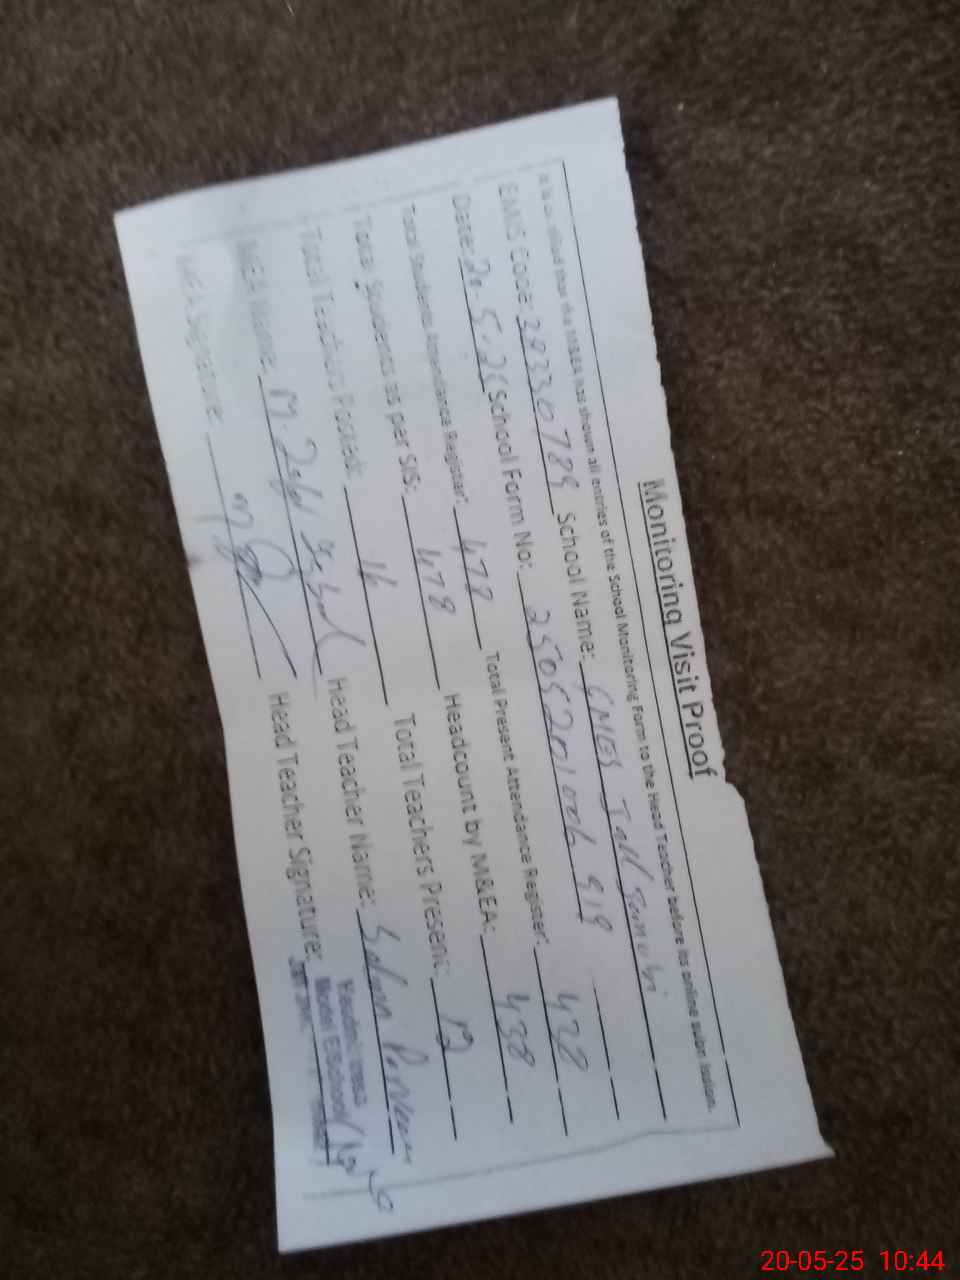 Monitoring Visit Proof
It is certified that the M&EA has shown all entries of the School Monitoring Form to the Head Teacher before its online submission.
EMIS Code: 38330789 School Name: GMES Jall Janubi
Date: 20-5-25 School Form No: 919
Total Students Attendance Register: 478 Total Present Attendance Register: 428
Total Students as per SIS: 478 Headcount by M&EA: 438
Total Teachers Posted: 16 Total Teachers Present: 12
MEA Name: M. Head Teacher Name: Salma Parveen
MEA Signature: Head Teacher Signature:
Headmistress
Model E/School
20-05-25 10:44